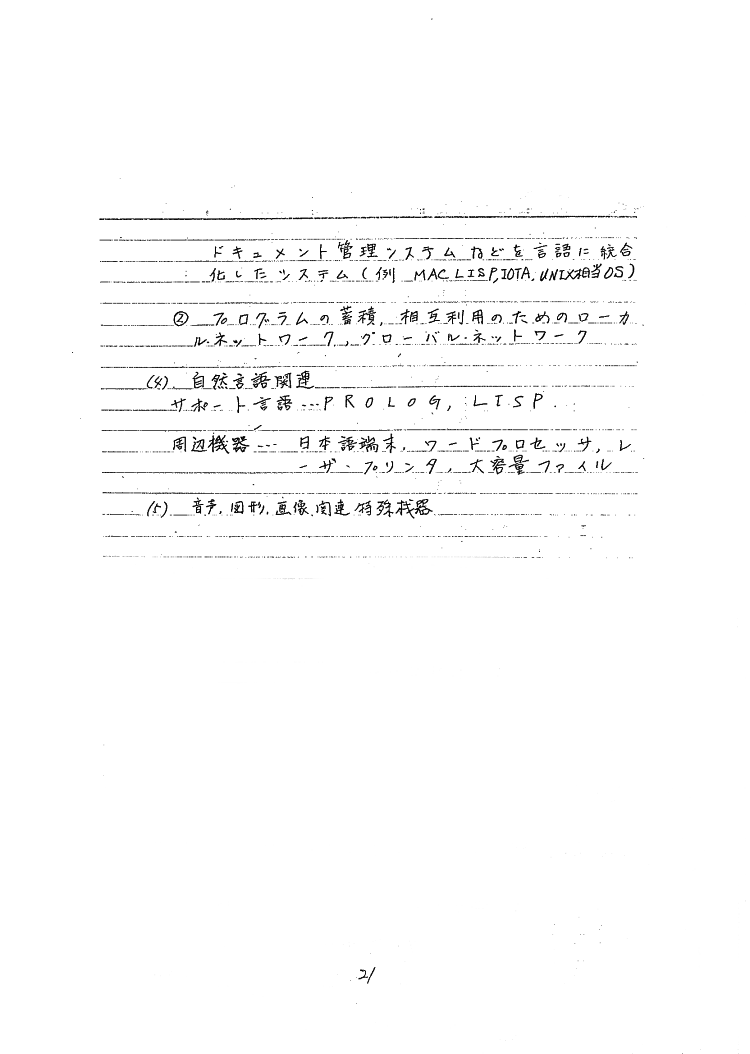 ドキュメント管理システムなどを言語に統合
化したシステム(例 MAC LISP, IOTA, UNIX相当OS)
② プログラムの蓄積, 相互利用のためのローカ
ル・ネットワーク, グローバル・ネットワーク
(4) 自然言語関連
サポート言語…PROLOG, LISP.
周辺機器… 日本語端末, ワードプロセッサ, レ
ーザ・プリンタ, 大容量ファイル
(5) 音声, 図形, 画像, 関連特殊機器
21